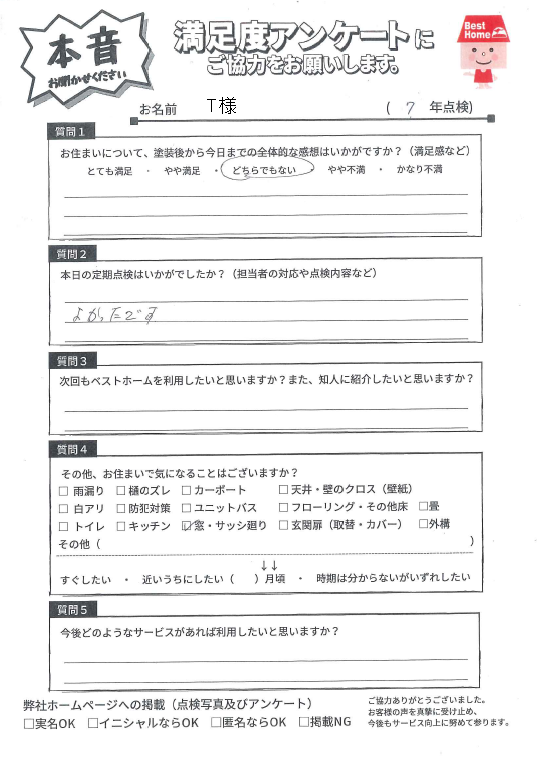 本音
お聞かせください
満足度アンケートに
ご協力をお願いします。
Best Home
お名前 T様 ( 7 年点検)
質問1
お住まいについて、塗装後から今日までの全体的な感想はいかがですか?(満足感など)
とても満足 ・ やや満足 ・ どちらでもない ・ やや不満 ・ かなり不満
質問2
本日の定期点検はいかがでしたか?(担当者の対応や点検内容など)
よかったです
質問3
次回もベストホームを利用したいと思いますか?また、知人に紹介したいと思いますか?
質問4
その他、お住まいで気になることはございますか?
□ 雨漏り □ 樋のズレ □ カーポート □ 天井・壁のクロス(壁紙)
□ 白アリ □ 防犯対策 □ ユニットバス □ フローリング・その他床 □畳
□ トイレ □ キッチン ☑窓・サッシ廻り □ 玄関扉(取替・カバー) □外構
その他( )
↓↓
すぐしたい ・ 近いうちにしたい( )月頃 ・ 時期は分からないがいずれしたい
質問5
今後どのようなサービスがあれば利用したいと思いますか?
弊社ホームページへの掲載(点検写真及びアンケート)
□実名OK □イニシャルならOK □匿名ならOK □掲載NG
ご協力ありがとうございました。
お客様の声を真摯に受け止め、
今後もサービス向上に努めて参ります。